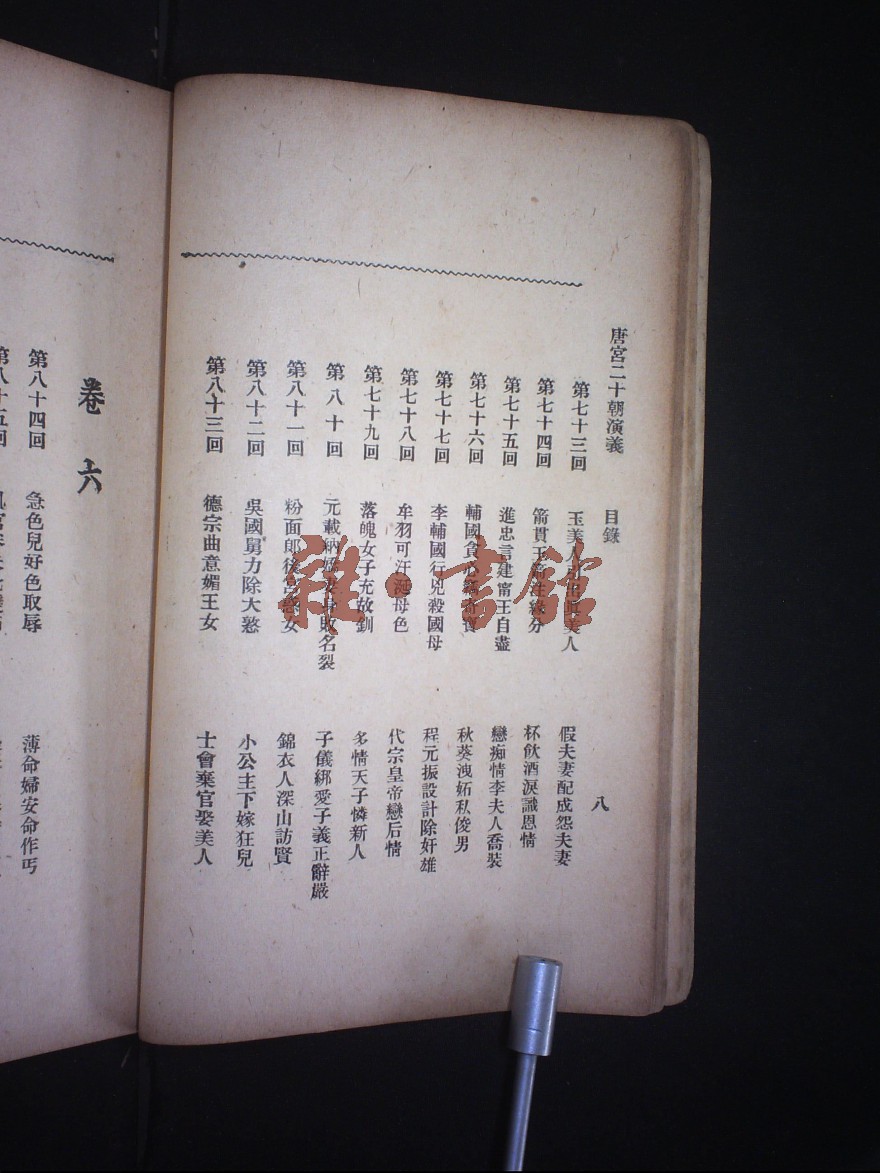 唐宮二十朝演義 目錄 八
第七十三回 玉美人引出眞美人 假夫妻配成怨夫妻
第七十四回 箭貫玉 緣分 杯飲酒淚識恩情
第七十五回 進忠言建甯王自盡 戀痴情李夫人喬裝
第七十六回 輔國貪心竊奇寶 秋葵洩妬私俊男
第七十七回 李輔國行兇殺國母 程元振設計除奸雄
第七十八回 牟羽可汗涎母色 代宗皇帝戀后情
第七十九回 落魄女子充故劍 多情天子憐新人
第八十回 元載納 身敗名裂 子儀綁愛子義正辭嚴
第八十一回 粉面郎後宮惑女 錦衣人深山訪賢
第八十二回 吳國舅力除大憝 小公主下嫁狂兒
第八十三回 德宗曲意媚王女 士會棄官娶美人
卷六
第八十四回 急色兒好色取辱 薄命婦安命作丐
第八十五回
雜·書館